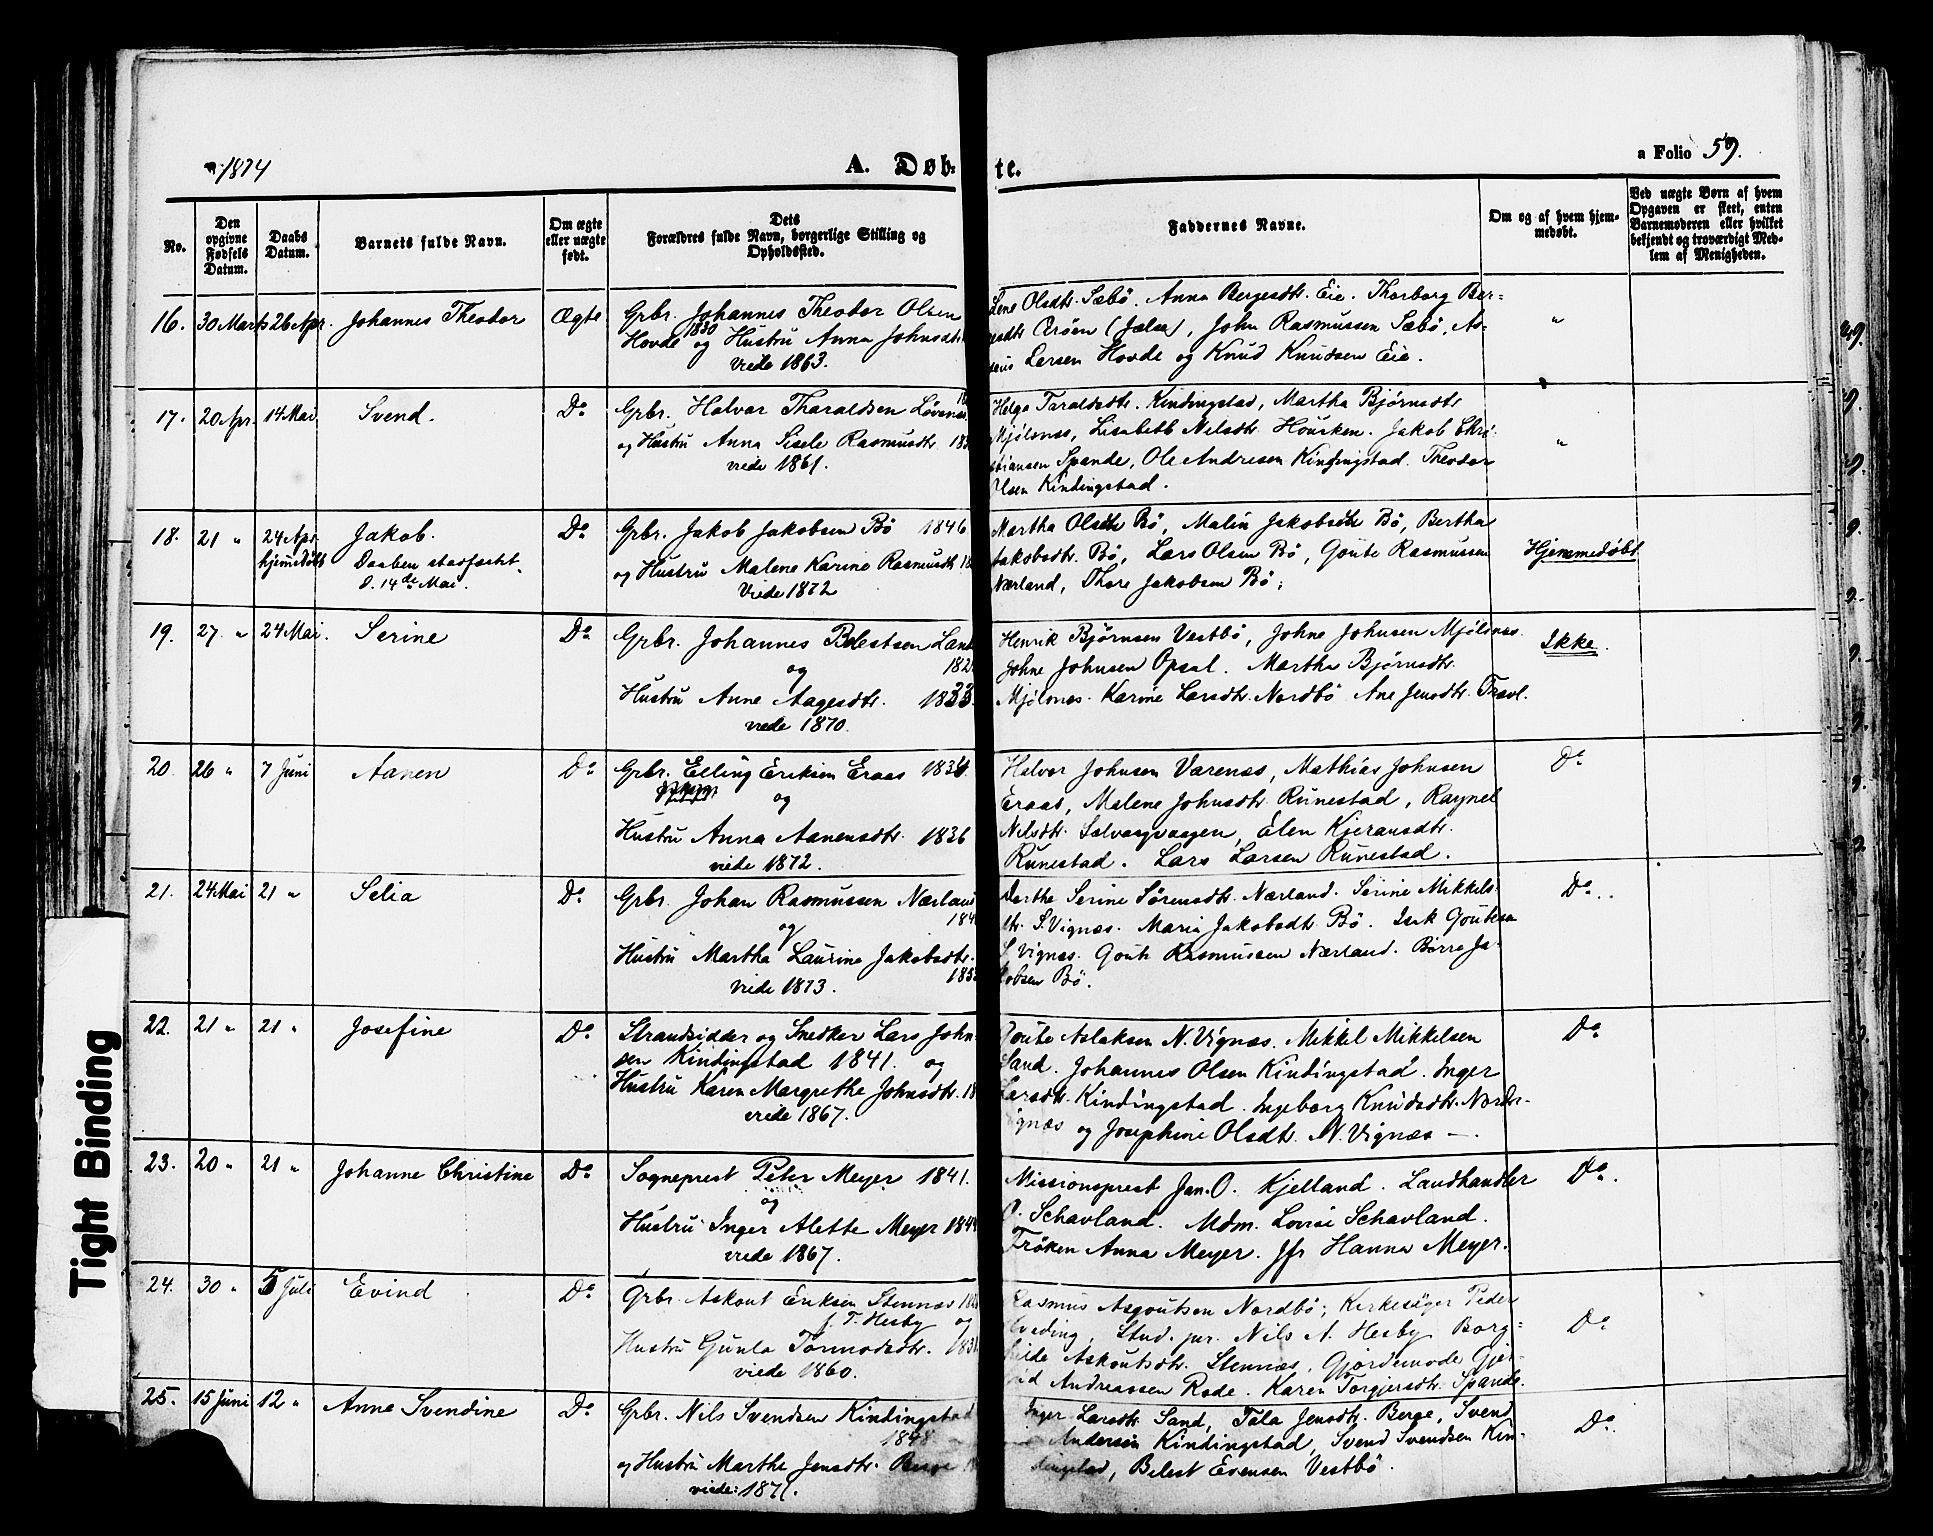 1874
A. Døb-
te.
a Folio 59.
No.
Den opgivne Fødsels Datum.
Daabs Datum.
Barnets fulde Navn.
Om ægte eller uægte født.
Dets Forældres fulde Navn, borgerlige Stilling og Opholdssted.
Faddernes Navne.
Om og af hvem hjemmedøbt.
Ved uægte Børn af hvem Opgaven er skeet, enten Barnemoderen eller hvilket bekjendt og troværdigt Medlem af Menigheden.
16. 30 Marts 26 Apr. Johannes Theodor Ægte
Grbr. Johannes Theodor Olsen
1830
Hovde og Hustru Anna Johnsdtr
viede 1863.
Lene Olsdtr. Sæbö. Anna Bergesdtr. Eie. Thorborg Ber-
gesdtr Ærøen (Jælsa), John Rasmussen Sæbö, As-
Larsen Hovde og Knud Knudsen Eie.
"
17. 20 Apr. 14 Mai. Svend. Do
Grbr. Halvor Tharaldsen Løvenæs
og Hustru Anna Sisele Rasmusdtr
viede 1861.
Helga Taraldsdtr. Kindingstad, Martha Bjørnsdtr
Mjølsnæs, Lisabeth Nelsdtr. Housken. Jakob Chri-
stiansen Spande, Ole Andresen Kindingstad. Theodor
Olsen Kindingstad.
"
18. 21 " 24 Apr. hjemedöbt Jakob. Do
Daaben stadfæstet
d. 14de Mai.
Grbr. Jakob Jakobsen Bö 1846
og Hustru Malene Karine Rasmusdtr 18
Viede 1872
Martha Olsdtr Bö, Malin Jakobsdtr Bö, Bertha
Jakobsdtr. Bö, Lars Olsen Bö, Goute Rasmussen
Nærland, Thore Jakobsen Bö;
Hjemmedøbt
19. 27. " 24 Mai. Serine Do
Grbr. Johannes Belestsen Land
182
og
Hustru Anne Aagesdtr. 1833.
viede 1870.
Henrik Bjørnsen Vestbö, Johne Johnsen Mjölsnæs.
Johne Johnsen Opsal. Martha Bjørnsdtr.
Mjølsnæs. Karine Larsdtr. Nordbö Ane Jensdtr. Travl.
Ikke.
20. 26 " 7 Juni Aanen Do
Grbr. Elling Eriksen Eraas 1834
og
Hustru Anna Aanensdtr. 1836
viede 1872.
Halvor Johnsen Varenæs, Mathias Johnsen
Eraas, Malene Johnsdtr. Runestad, Raynel
Nilsdtr. Selvaagvaagen, Elen Kjeransdtr.
Runestad. Lars Larsen Runestad.
Do
21. 24 Mai 21 " Selia Do
Grbr. Johan Rasmussen Nærland
184
og
Hustru Martha Laurine Jakobsdtr.
185
viede 1873.
Dorthe Serine Sörensdtr. Nærland. Serine Mikkels-
dtr. S. Vignæs. Maria Jakobsdtr. Bö. Isak Goutesen
S Vignæs. Goute Rasmussen Nærland. Börre Ja-
kobsen Bö.
Do.
22. 21 " 21 " Josefine Do
Strandsidder og Snedker Lars John-
sen Kindingstad 1841. og
Hustru Karen Margrethe Johnsdtr. 18
viede 1867.
Goute Aslaksen N. Vignæs. Mikkel Mikkelsen
Sand. Johannes Olsen Kindingstad. Inger
Larsdtr. Kindingstad. Ingeborg Knudsdtr. Nordr-
vignæs og Josephine Olsdtr. N. Vignæs —.
Do
23. 20 " 21 " Johanne Christine Do
Sogneprest Peter Meyer 1841.
og
Hustru Inger Alette Meyer 184
viede 1867.
Missionsprest Jan. O. Kjelland. Landhandler
O. Schavland. Mdm. Lovise Schavland.
Fröken Anna Meyer. Jfr Hanna Meyer.
Do.
24. 30 " 5 Juli Evind Do
Grbr. Askout Eriksen Stennæs 18
f. T. Hesby og
Hustru Gunla Tormodsdtr. 183
viede 1860.
Rasmus Asgoutsen Nordbö; Kirkesöger Peder
Hveding, Stud. jur. Nils A. Hesby Borg-
hilde Askoutsdtr. Stennæs, Gjordemoder Gjer-
Andreassen Rode. Karen Torgjersdtr. Spande.
Do
25. 15 Juni 12 " Anne Svendine Do
Grbr. Nils Svendsen Kindingstad
1848
og Hustru Marthe Jensdtr. Berge
viede: 1871.
Inger Larsdtr Sand, Tala Jensdtr. Berge, Svend
Andersen Kindingstad, Svend Svendsen Kin-
dingstad, Belest Evensen Vestbö.
Do.
Tight Binding